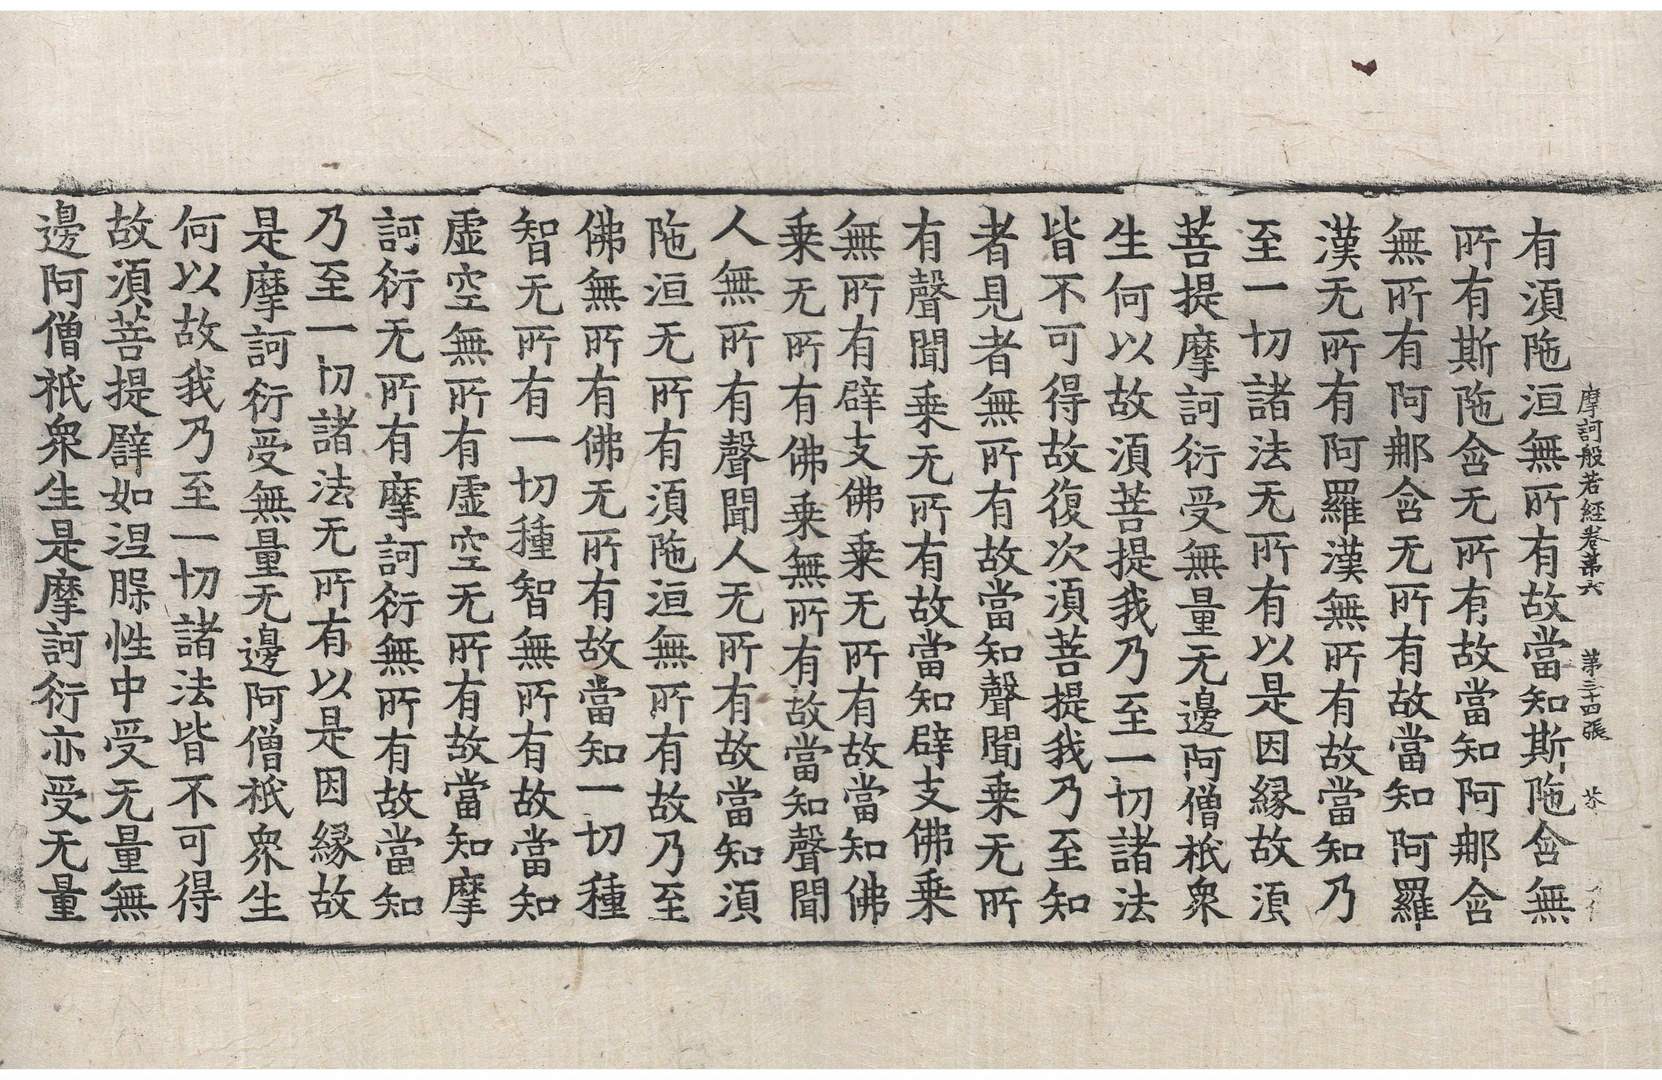 摩訶般若經卷第六 第三十四張
有湏陁洹無所有故當知斯陁含無
所有斯陁含无所有故當知阿那含
無所有阿那含无所有故當知阿羅
漢无所有阿羅漢無所有故當知乃
至一切諸法无所有以是因緣故湏
菩提摩訶衍受無量无邊阿僧祇衆
生何以故湏菩提我乃至一切諸法
皆不可得故復次湏菩提我乃至知
者見者無所有故當知聲聞乗无所
有聲聞乗无所有故當知辟支佛乗
無所有辟支佛乗无所有故當知佛
乗无所有佛乗無所有故當知聲聞
人無所有聲聞人无所有故當知湏
陁洹无所有湏陁洹無所有故乃至
佛無所有佛无所有故當知一切種
智无所有一切種智無所有故當知
虛空無所有虛空无所有故當知摩
訶衍无所有摩訶衍無所有故當知
乃至一切諸法无所有以是因緣故
是摩訶衍受無量无邊阿僧祇衆生
何以故我乃至一切諸法皆不可得
故湏菩提譬如涅槃性中受无量無
邊阿僧祇衆生是摩訶衍亦受无量